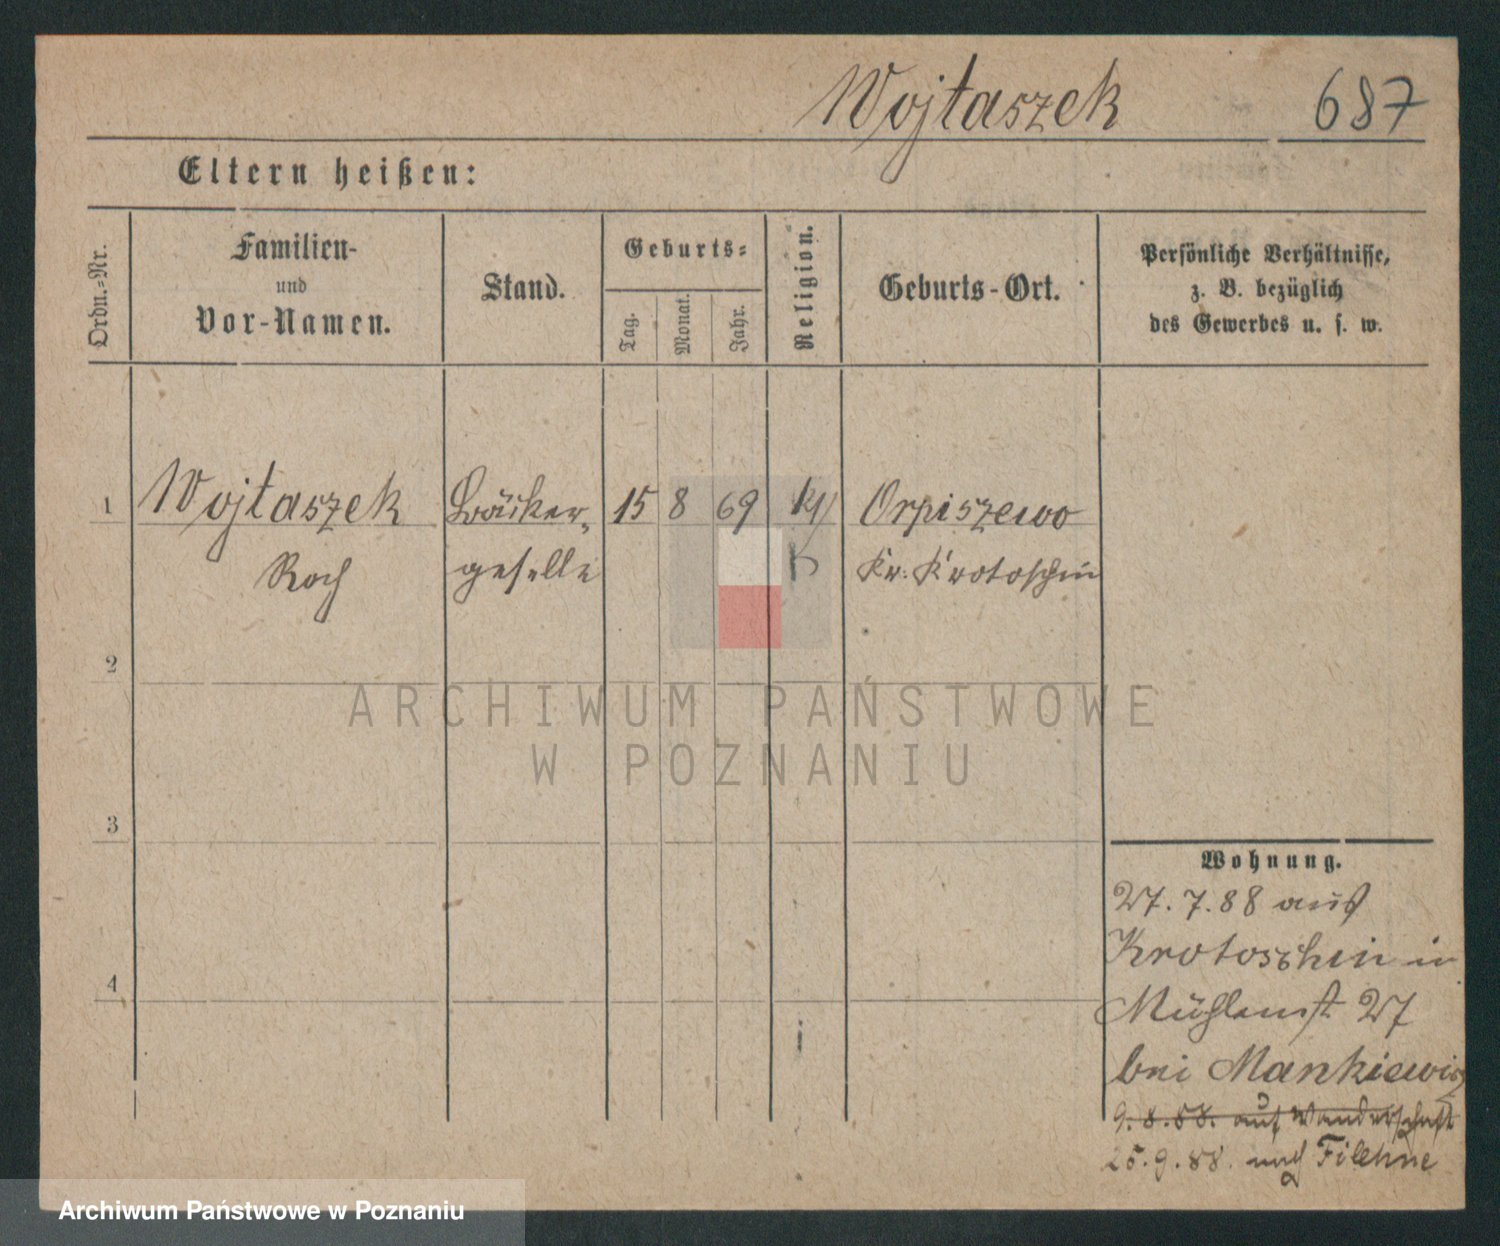 Wojtaszek 687
Eltern heißen:
Ordn.-Nr.
Familien-
und
Vor-Namen.
Stand.
Geburts-
Tag.
Monat.
Jahr.
Religion.
Geburts-Ort.
Persönliche Verhältnisse,
z. B. bezüglich
des Gewerbes u. s. w.
1 Wojtaszek Bäcker- 15 8 69 Orpiszewo
Roch geselle K Kr. Krotoschin
2
3
4
ARCHIWUM PAŃSTWOWE
W POZNANIU
Wohnung.
27. 7. 88 aus
Krotoschin in
Mühlenst 27
bei Mankiewicz
9. 8. 88. auf Wanderschaft
25. 9. 88. nach Filehne
Archiwum Państwowe w Poznaniu